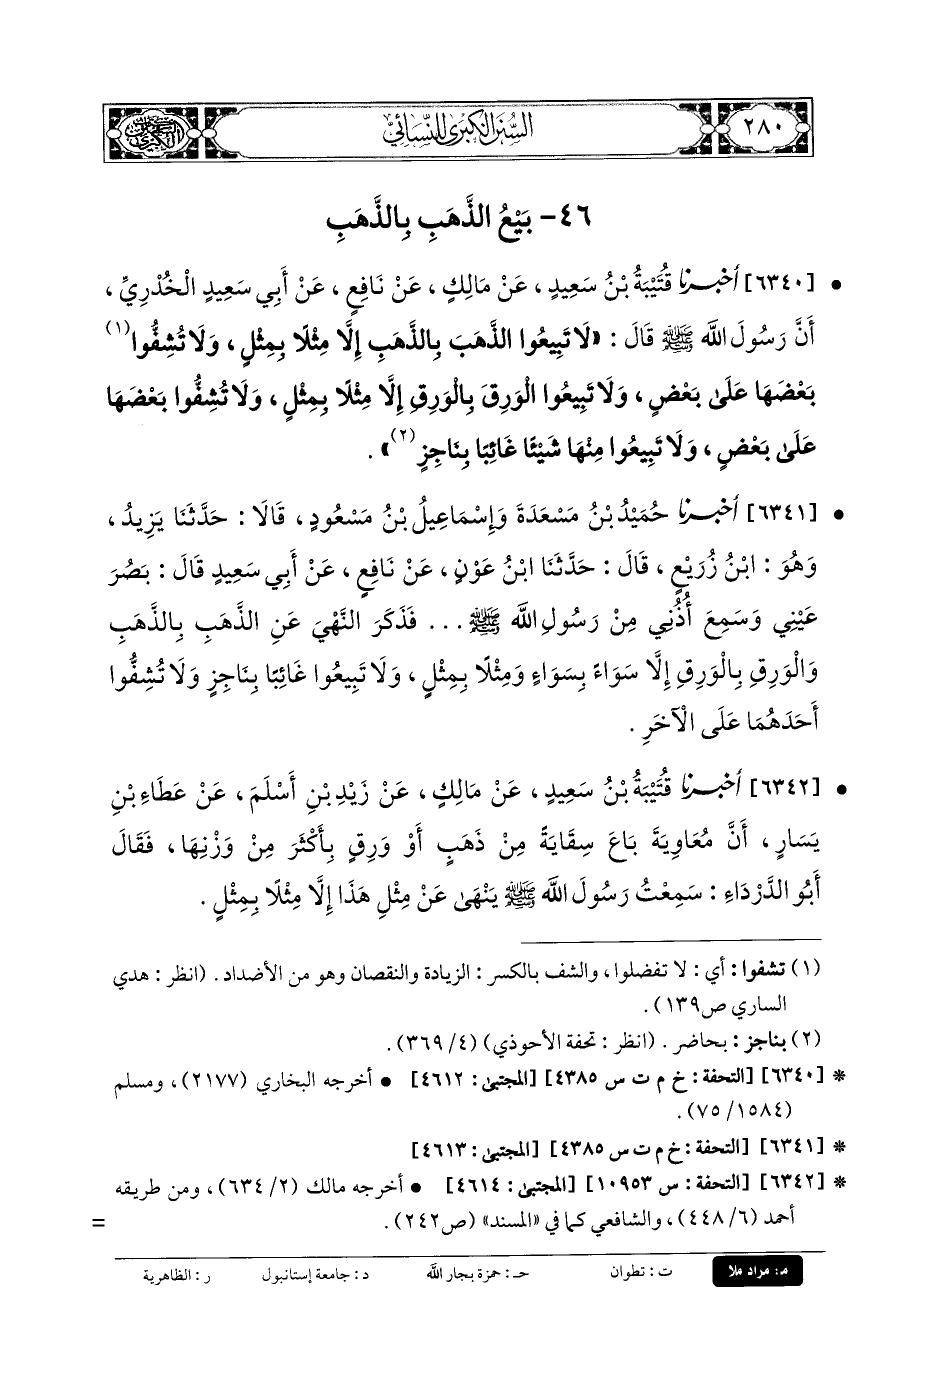 ٢٨٠
السنن الكبرى للنسائي
٤٦- بَيْعُ الذَّهَبِ بِالذَّهَبِ
• [٦٣٤٠] أخبرنا قُتَيْبَةُ بْنُ سَعِيدٍ، عَنْ مَالِكٍ، عَنْ نَافِعٍ، عَنْ أَبِي سَعِيدٍ الْخُدْرِيِّ،
أَنَّ رَسُولَ اللَّه ﷺ قَالَ: «لَا تَبِيعُوا الذَّهَبَ بِالذَّهَبِ إِلَّا مِثْلًا بِمِثْلٍ، وَلَا تُشِفُّوا(١)
بَعْضَهَا عَلَى بَعْضٍ، وَلَا تَبِيعُوا الْوَرِقَ بِالْوَرِقِ إِلَّا مِثْلًا بِمِثْلٍ، وَلَا تُشِفُّوا بَعْضَهَا
عَلَى بَعْضٍ، وَلَا تَبِيعُوا مِنْهَا شَيْئًا غَائِبًا بِنَاجِزٍ(٢)».
• [٦٣٤١] أخبرنا حُمَيْدُ بْنُ مَسْعَدَةَ وَإِسْمَاعِيلُ بْنُ مَسْعُودٍ، قَالَا: حَدَّثَنَا يَزِيدُ،
وَهُوَ: ابْنُ زُرَيْعٍ، قَالَ: حَدَّثَنَا ابْنُ عَوْنٍ، عَنْ نَافِعٍ، عَنْ أَبِي سَعِيدٍ قَالَ: بَصُرَ
عَيْنِي وَسَمِعَ أُذُنِي مِنْ رَسُولِ اللَّه ﷺ ... فَذَكَرَ النَّهْيَ عَنِ الذَّهَبِ بِالذَّهَبِ
وَالْوَرِقِ بِالْوَرِقِ إِلَّا سَوَاءً بِسَوَاءٍ وَمِثْلًا بِمِثْلٍ، وَلَا تَبِيعُوا غَائِبًا بِنَاجِزٍ وَلَا تُشِفُّوا
أَحَدَهُمَا عَلَى الْآخَرِ.
• [٦٣٤٢] أخبرنا قُتَيْبَةُ بْنُ سَعِيدٍ، عَنْ مَالِكٍ، عَنْ زَيْدِ بْنِ أَسْلَمَ، عَنْ عَطَاءِ بْنِ
يَسَارٍ، أَنَّ مُعَاوِيَةَ بَاعَ سِقَايَةً مِنْ ذَهَبٍ أَوْ وَرِقٍ بِأَكْثَرَ مِنْ وَزْنِهَا، فَقَالَ
أَبُو الدَّرْدَاءِ: سَمِعْتُ رَسُولَ اللَّه ﷺ يَنْهَى عَنْ مِثْلِ هَذَا إِلَّا مِثْلًا بِمِثْلٍ.
(١) تشفوا: أي: لا تفضلوا، والشف بالكسر: الزيادة والنقصان وهو من الأضداد. (انظر: هدي
الساري ص١٣٩).
(٢) بناجز: بحاضر. (انظر: تحفة الأحوذي) (٤/ ٣٦٩).
* [٦٣٤٠] [التحفة: خ م ت س ٤٣٨٥] [المجتبى: ٤٦١٢] • أخرجه البخاري (٢١٧٧)، ومسلم
(١٥٨٤/ ٧٥).
* [٦٣٤١] [التحفة: خ م ت س ٤٣٨٥] [المجتبى: ٤٦١٣]
* [٦٣٤٢] [التحفة: س ١٠٩٥٣] [المجتبى: ٤٦١٤] • أخرجه مالك (٢/ ٦٣٤)، ومن طريقه
أحمد (٦/ ٤٤٨)، والشافعي كما في «المسند» (ص٢٤٢). =
م: مراد ملا ت: تطوان حـ: حمزة بجار الله د: جامعة إستانبول ر: الظاهرية